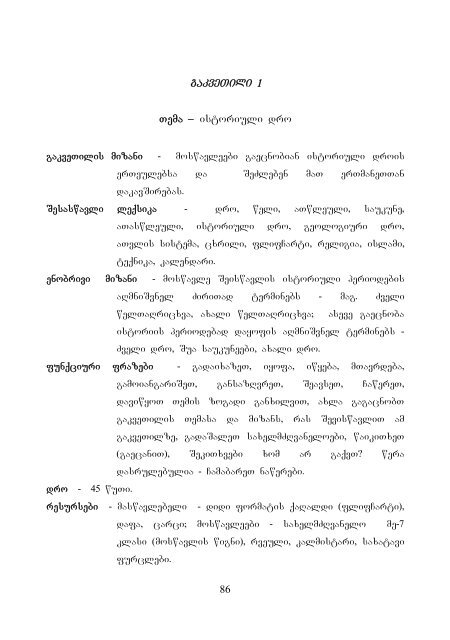 გაკვეთილი 1
თემა – ისტორიული დრო
გაკვეთილის მიზანი - მოსწავლეები გაეცნობიან ისტორიული დროის
ერთეულებსა და შეძლებენ მათ ერთმანეთთან
დაკავშირებას.
შესასწავლი ლექსიკა - დრო, წელი, ათწლეული, საუკუნე,
ათასწლეული, ისტორიული დრო, გეოლოგიური დრო,
ათვლის სისტემა, ცხრილი, ფლიფჩარტი, რელიგია, ისლამი,
ტექნიკა, კალენდარი.
ენობრივი მიზანი - მოსწავლე შეისწავლის ისტორიული პერიოდების
აღმნიშვნელ ძირითად ტერმინებს - მაგ. ძველი
წელთაღრიცხვა, ახალი წელთაღრიცხვა; ასევე გაეცნობა
ისტორიის პერიოდებად დაყოფის აღმნიშვნელ ტერმინებს -
ძველი დრო, შუა საუკუნეები, ახალი დრო.
ფუნქციური ფრაზები - გადაიხაზეთ, იყოფა, იწყება, მთავრდება,
გამოიანგარიშეთ, განსაზღვრეთ, შეავსეთ, ჩაწერეთ,
დავიწყოთ თემის ზოგადი განხილვით, ახლა გაგაცნობთ
გაკვეთილის თემასა და მიზანს, რას შევისწავლით ამ
გაკვეთილზე, გადაშალეთ სახელმძღვანელოები, წაიკითხეთ
(გაეცანით), შეკითხვები ხომ არ გაქვთ? წერა
დასრულებულია - ჩამაბარეთ ნაწერები.
დრო - 45 წუთი.
რესურსები - მასწავლებელი - დიდი ფორმატის ქაღალდი (ფლიფჩარტი),
დაფა, ცარცი; მოსწავლეები - სახელმძღვანელო მე-7
კლასი (მოსწავლის წიგნი), რვეული, კალმისტარი, სახატავი
ფურცლები.
86